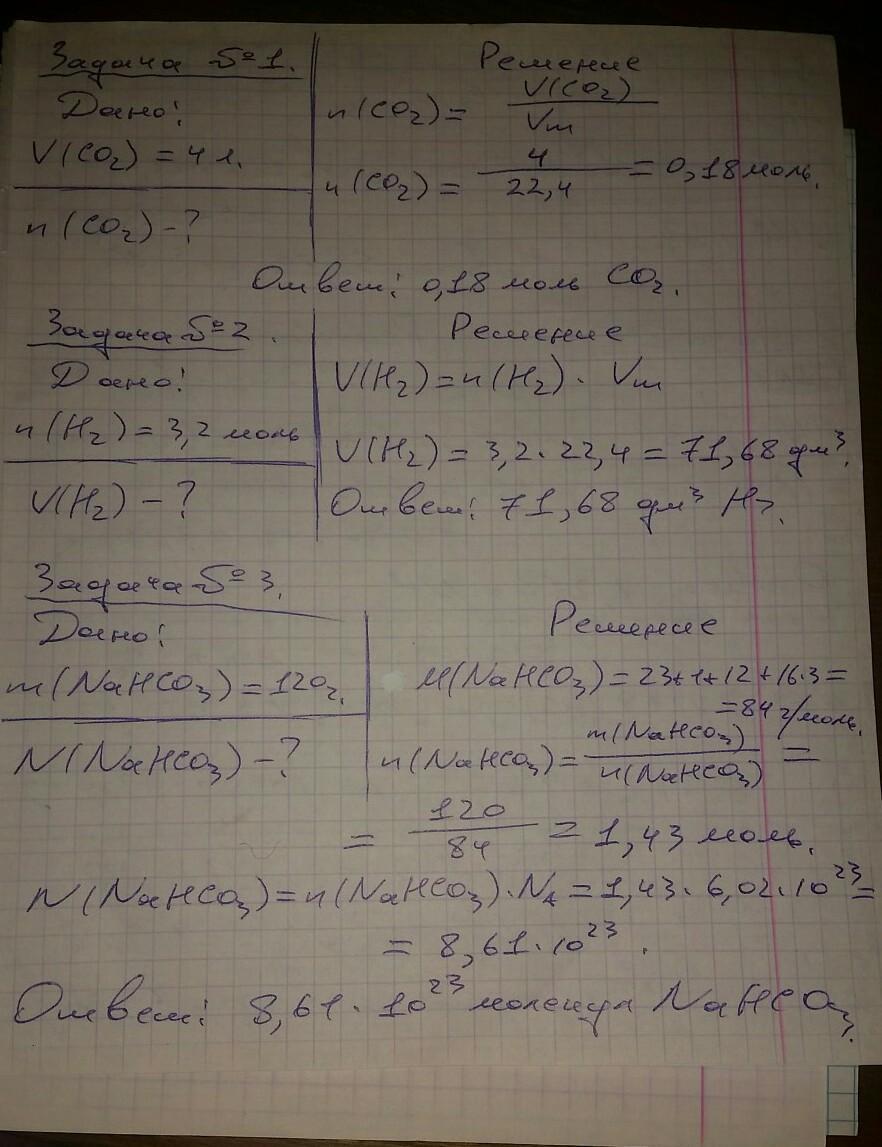 Задача №1.
Дано:
V(CO₂) = 4 л.
n(CO₂) - ?
Решение
n(CO₂) = V(CO₂) / Vm
n(CO₂) = 4 / 22,4 = 0,18 моль.
Ответ: 0,18 моль CO₂.
Задача №2.
Дано:
n(H₂) = 3,2 моль
V(H₂) - ?
Решение
V(H₂) = n(H₂) · Vm
V(H₂) = 3,2 · 22,4 = 71,68 дм³.
Ответ: 71,68 дм³ H₂.
Задача №3.
Дано:
m(NaHCO₃) = 120г.
N(NaHCO₃) - ?
Решение
M(NaHCO₃) = 23+1+12+16·3 =
= 84 г/моль.
n(NaHCO₃) = m(NaHCO₃) / n(NaHCO₃) =
= 120 / 84 = 1,43 моль.
N(NaHCO₃) = n(NaHCO₃) · NA = 1,43 · 6,02 · 10²³ =
= 8,61 · 10²³.
Ответ: 8,61 · 10²³ молекул NaHCO₃.